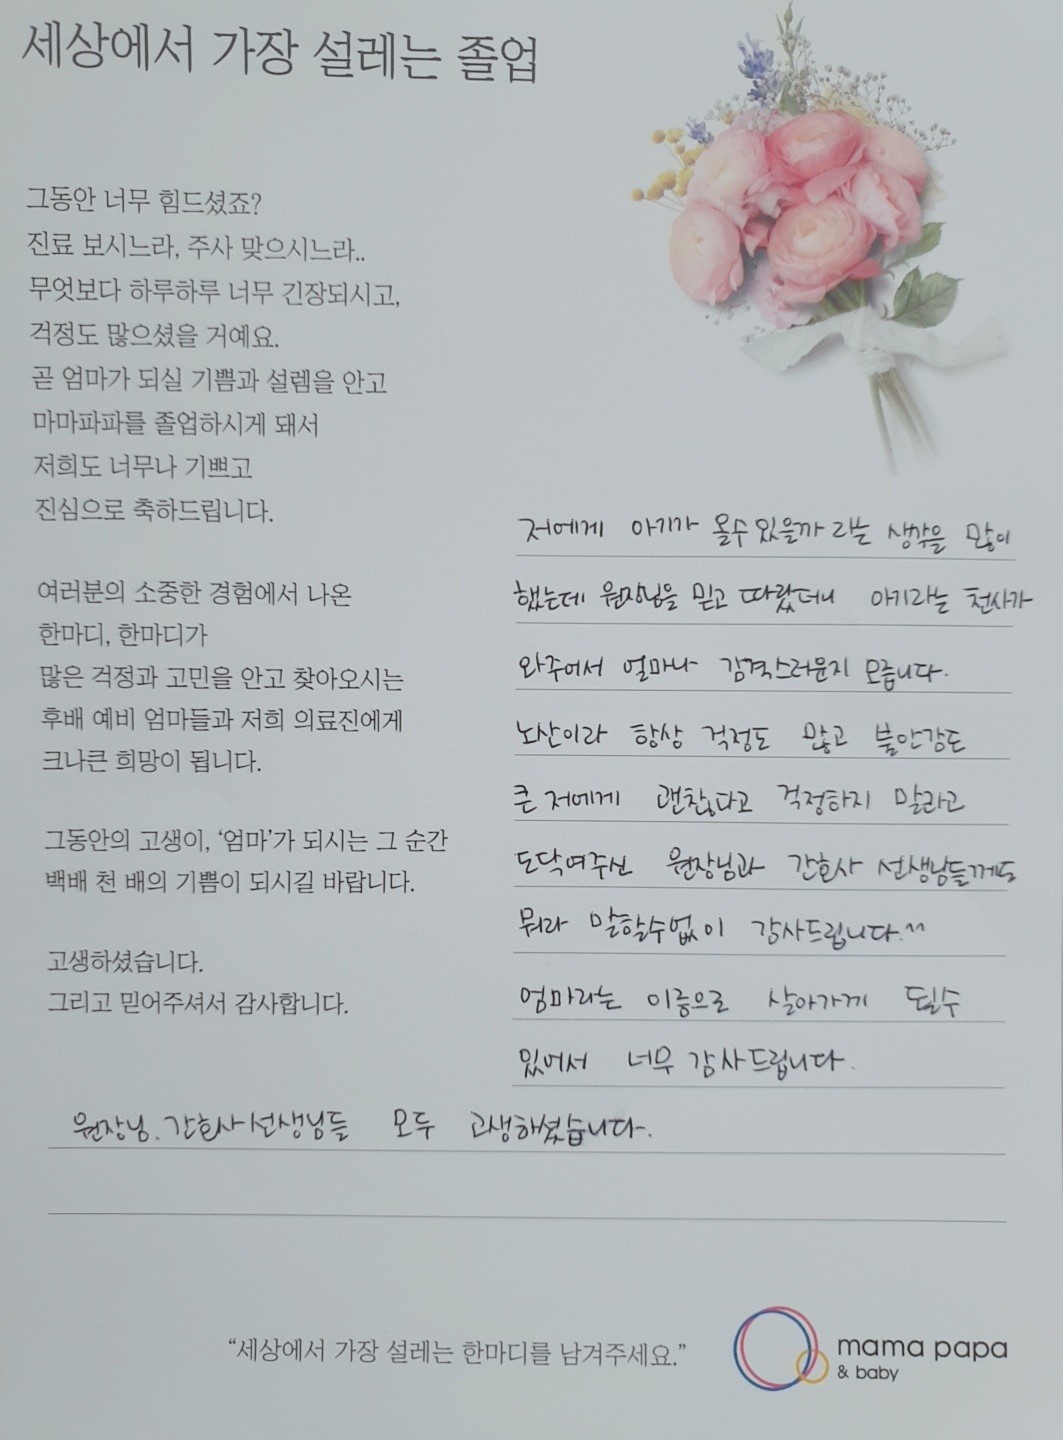 세상에서 가장 설레는 졸업
그동안 너무 힘드셨죠?
진료 보시느라, 주사 맞으시느라..
무엇보다 하루하루 너무 긴장되시고,
걱정도 많으셨을 거예요.
곧 엄마가 되실 기쁨과 설렘을 안고
마마파파를 졸업하시게 돼서
저희도 너무나 기쁘고
진심으로 축하드립니다.
여러분의 소중한 경험에서 나온
한마디, 한마디가
많은 걱정과 고민을 안고 찾아오시는
후배 예비 엄마들과 저희 의료진에게
크나큰 희망이 됩니다.
그동안의 고생이, ‘엄마’가 되시는 그 순간
백배 천 배의 기쁨이 되시길 바랍니다.
고생하셨습니다.
그리고 믿어주셔서 감사합니다.
저에게 아기가 올수있을까 라는 생각을 많이
했는데 원장님을 믿고 따랐더니 아기라는 천사가
와주어서 얼마나 감격스러운지 모릅니다.
노산이라 항상 걱정도 많고 불안감도
큰 저에게 괜찮다고 걱정하지 말라고
도닥여주신 원장님과 간호사 선생님들께도
뭐라 말할수없이 감사드립니다.^^
엄마라는 이름으로 살아가게 될수
있어서 너무 감사드립니다.
원장님, 간호사선생님들 모두 고생하셨습니다.
“세상에서 가장 설레는 한마디를 남겨주세요.”
mama papa
& baby